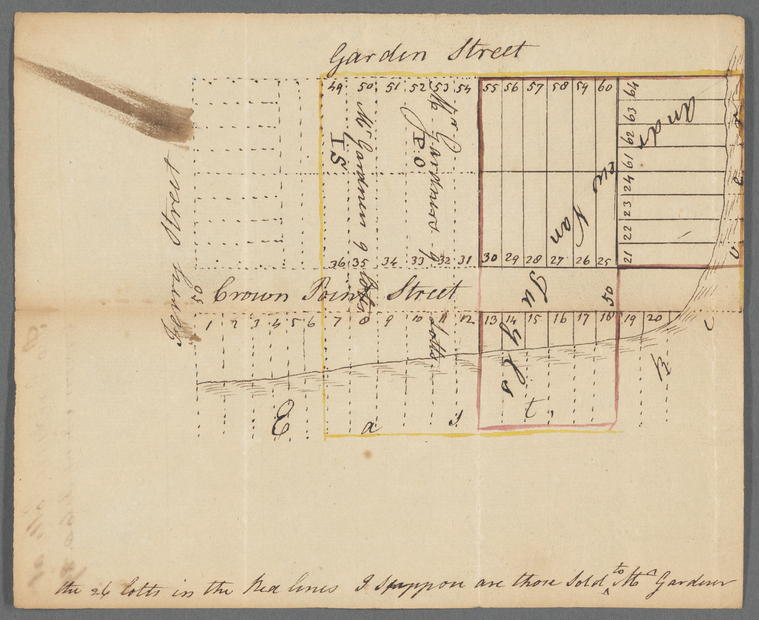 Garden Street
49 50 51 52 53 54 55 56 57 58 59 60
64
63
62
61
24
23
22
21
Mr Gardner 9 Lotts
IS
Mr Gardner 9 Lotts
PO
Andrew Van Tuyls
Ferry Street
50
36 35 34 33 32 31 30 29 28 27 26 25
Crown Point Street
50
1 2 3 4 5 6 7 8 9 10 11 12 13 14 15 16 17 18 19 20
E a s t
the 26 lotts in the Red lines I suppose are those Sold to Mr Gardner